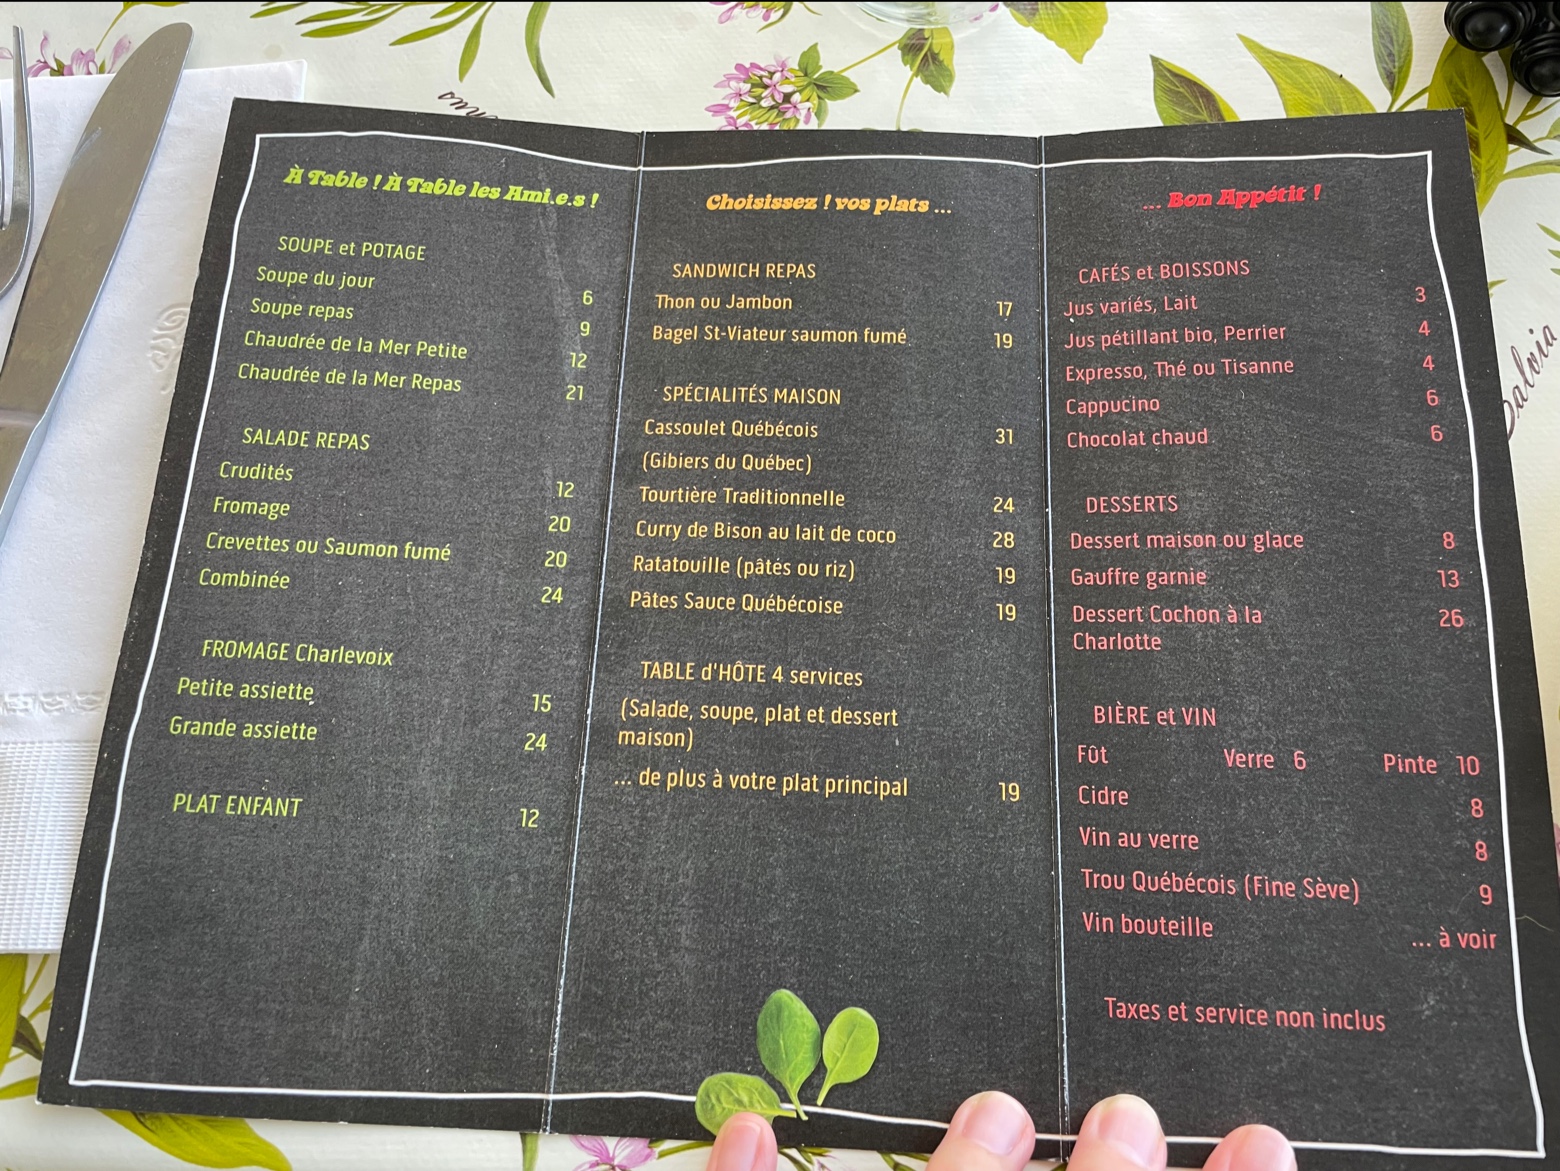 À Table ! À Table les Ami.e.s !
SOUPE et POTAGE
Soupe du jour 6
Soupe repas 9
Chaudrée de la Mer Petite 12
Chaudrée de la Mer Repas 21
SALADE REPAS
Crudités 12
Fromage 20
Crevettes ou Saumon fumé 20
Combinée 24
FROMAGE Charlevoix
Petite assiette 15
Grande assiette 24
PLAT ENFANT 12
Choisissez ! vos plats ...
SANDWICH REPAS
Thon ou Jambon 17
Bagel St-Viateur saumon fumé 19
SPÉCIALITÉS MAISON
Cassoulet Québécois 31
(Gibiers du Québec)
Tourtière Traditionnelle 24
Curry de Bison au lait de coco 28
Ratatouille (pâtés ou riz) 19
Pâtes Sauce Québécoise 19
TABLE d'HÔTE 4 services
(Salade, soupe, plat et dessert
maison)
... de plus à votre plat principal 19
... Bon Appétit !
CAFÉS et BOISSONS
Jus variés, Lait 3
Jus pétillant bio, Perrier 4
Expresso, Thé ou Tisanne 4
Cappucino 6
Chocolat chaud 6
DESSERTS
Dessert maison ou glace 8
Gauffre garnie 13
Dessert Cochon à la 26
Charlotte
BIÈRE et VIN
Fût Verre 6 Pinte 10
Cidre 8
Vin au verre 8
Trou Québécois (Fine Sève) 9
Vin bouteille ... à voir
Taxes et service non inclus